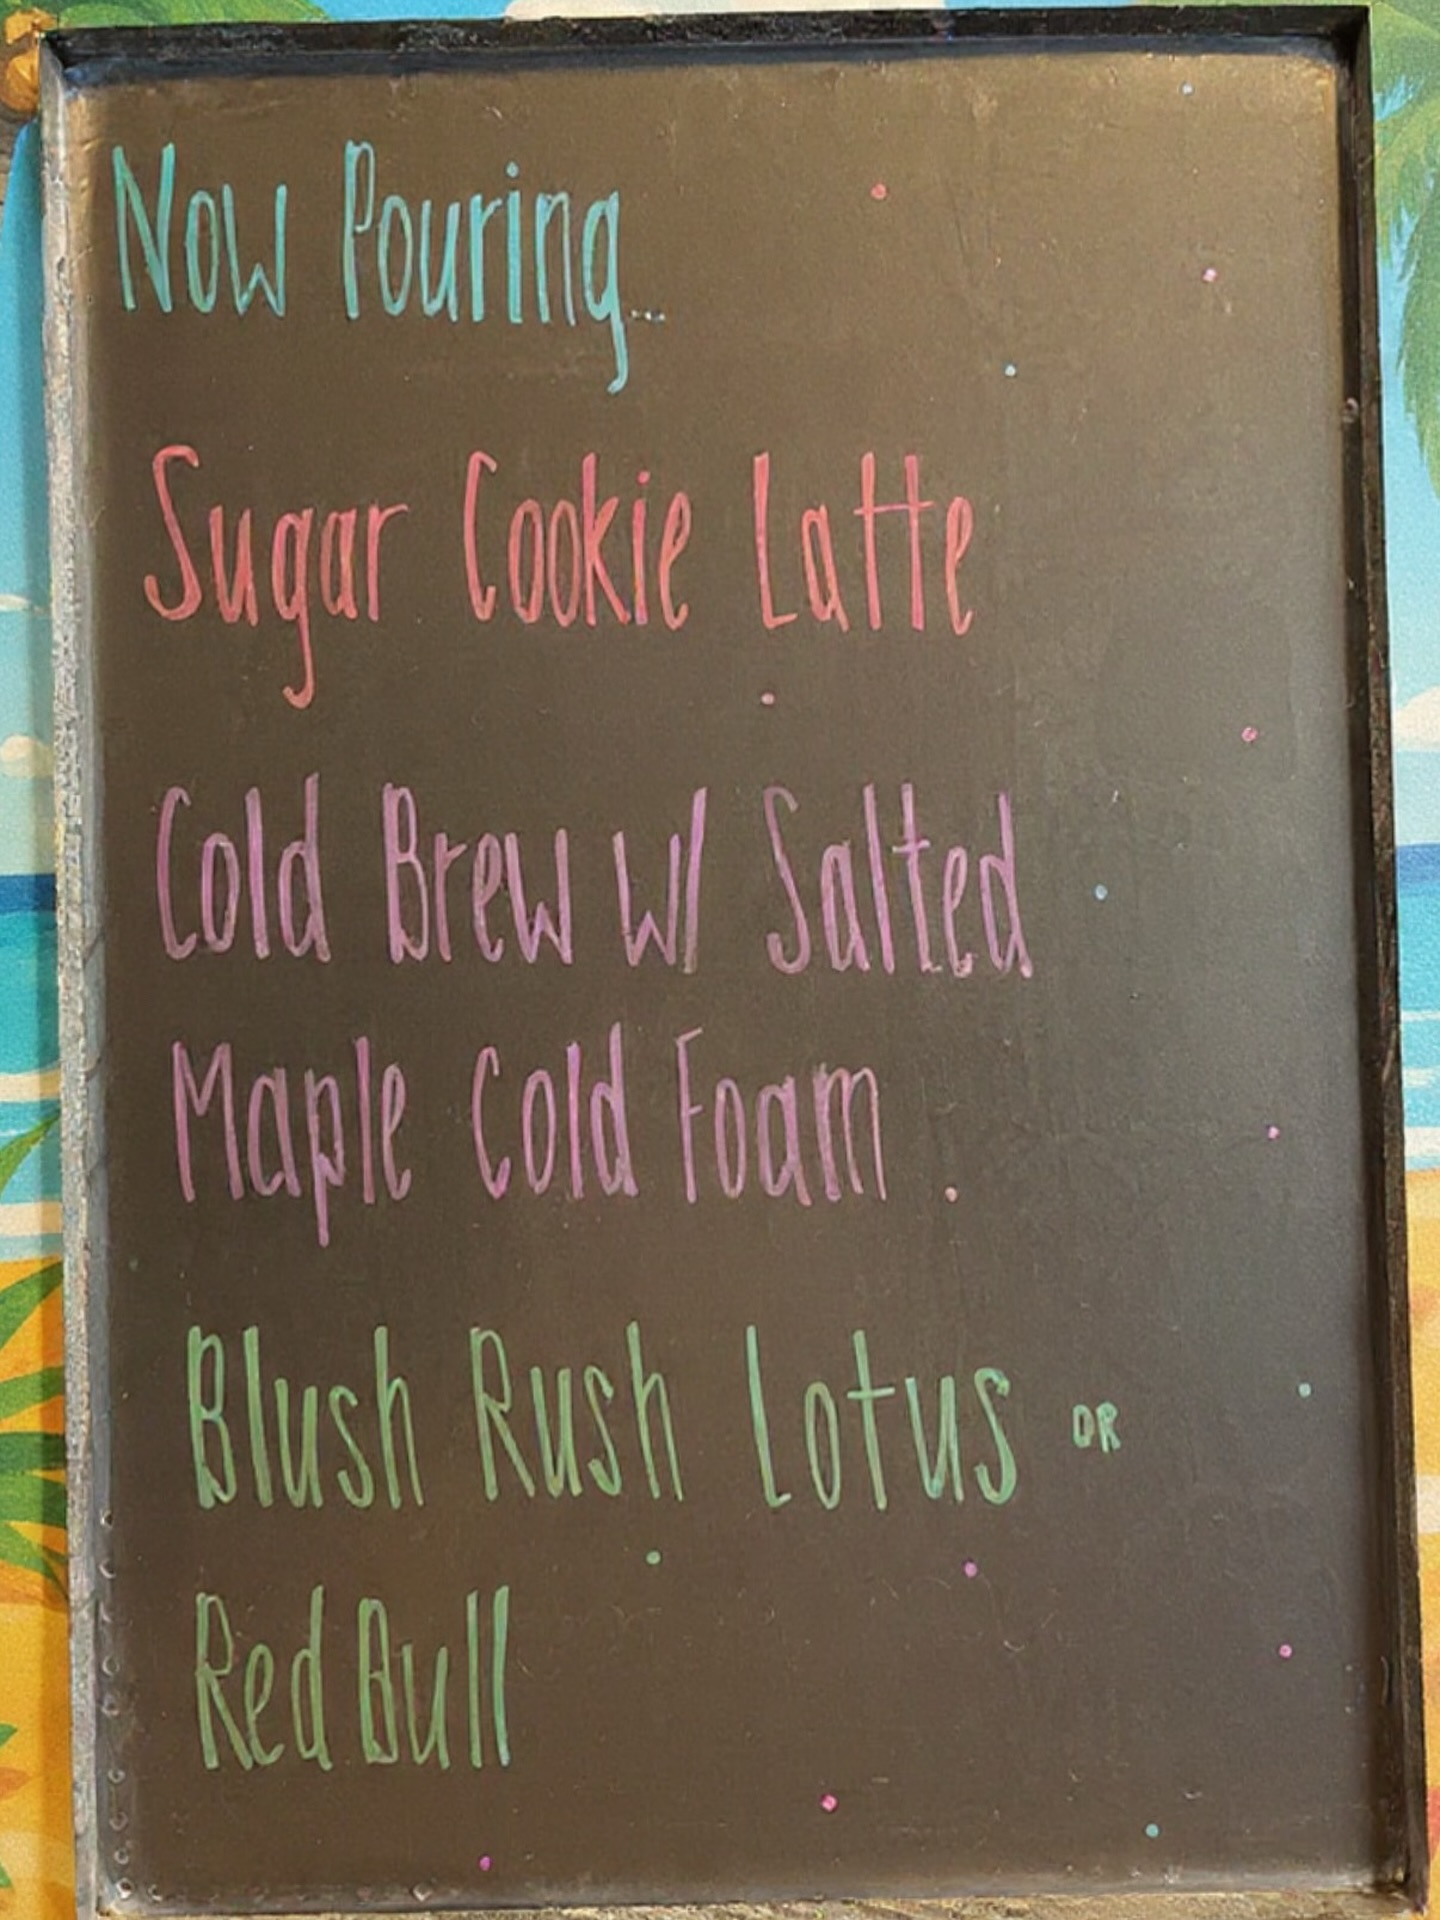 Now Pouring...
Sugar Cookie Latte
Cold Brew w/ Salted
Maple Cold Foam
Blush Rush Lotus OR
Red Bull